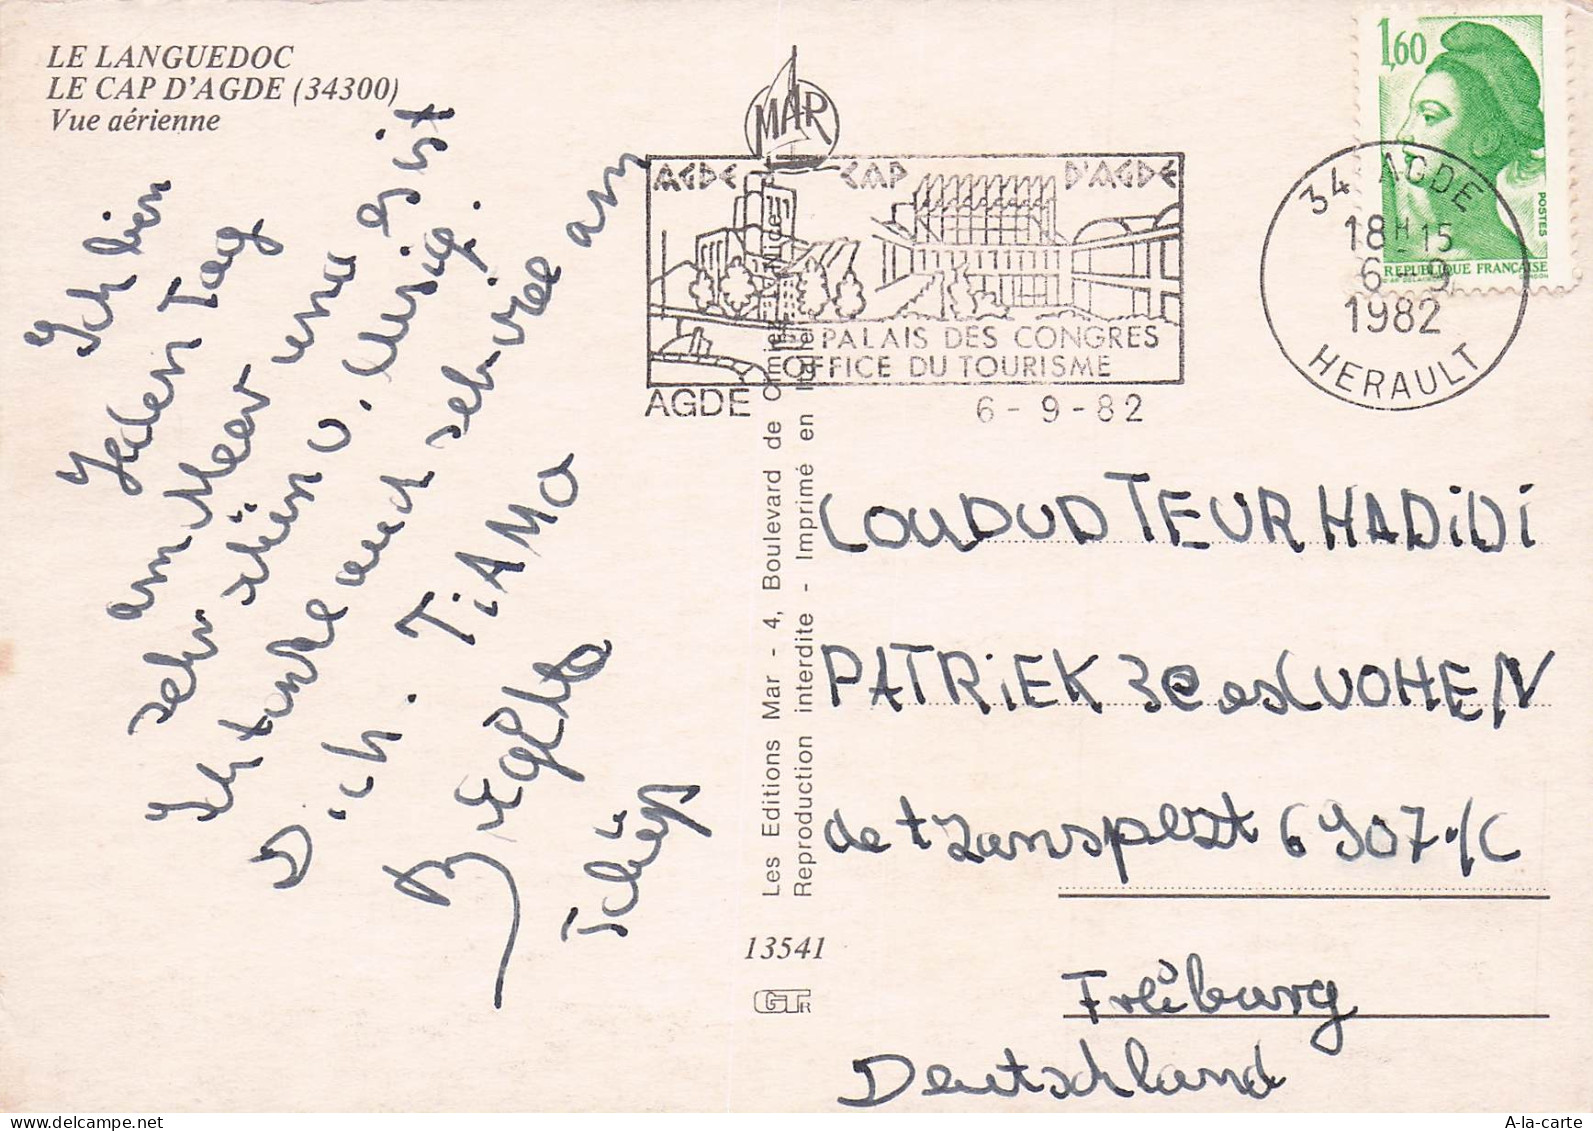 LE LANGUEDOC
LE CAP D'AGDE (34300)
Vue aérienne
Ich bin
Jeden Tag
am Meer und es ist
sehr schön u. lusig.
Ich tanke auch sehr viel an
Dich. TiAMO
Tchüs
Les Editions Mar - 4, Boulevard de Cimiez - Nice
Reproduction interdite - Imprimé en Italie
13541
GTR
MAR
AGDE CAP D'AGDE
PALAIS DES CONGRES
OFFICE DU TOURISME
AGDE 6-9-82
1,60
POSTES
REPUBLIQUE FRANÇAISE
34 AGDE
18H15
6-9
1982
HERAULT
COUDUDTEUR HADiDi
PATRiEK
de transpert 6907
Freiburg
Deutschland
A-la-carte